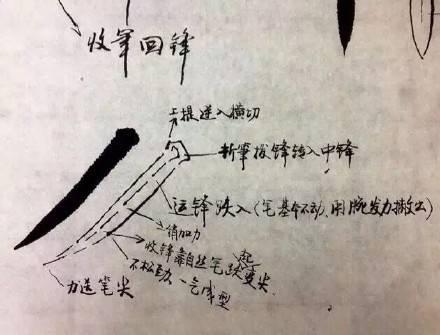 收笔回锋
上提逆入横切
折筆拨锋转入中锋
运锋跌入(笔基本不动、用腕发力撇出)
稍加力
收锋靠自然笔跌起变尖
不松劲、一气成型
力送笔尖